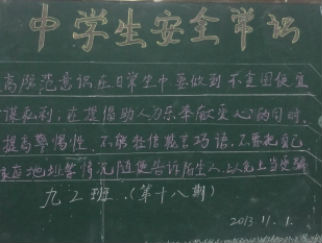 中学生安全常识
高防范意识在日常生中要做到不贪图便宜
谋私利;在提倡助人为乐奉献爱心的同时,
提高警惕性,不能轻信花言巧语,不要把自己
家庭地址等情况随便告诉陌生人,以免上当受骗
九2班..(第十八期)
2013.11.1.